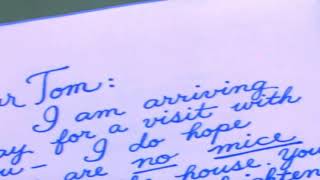 Tom:
I am arriving
for a visit with
I do hope
are no mice
house. You